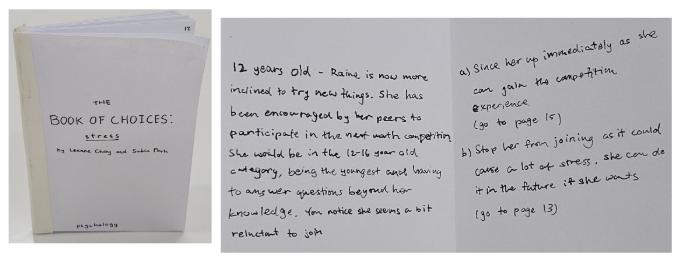 12
THE
BOOK OF CHOICES:
stress
by Leanne Chong and
psychology
12 years old - Raine is now more
inclined to try new things. She has
been encouraged by her peers to
participate in the next math competition
She would be in the 12-16 year old
category, being the youngest and having
to answer questions beyond her
knowledge. You notice she seems a bit
reluctant to join
a) Since her up immediately as she
can gain the competition
experience
(go to page 15)
b) Stop her from joining as it could
cause a lot of stress. she can do
it in the future if she wants
(go to page 13)